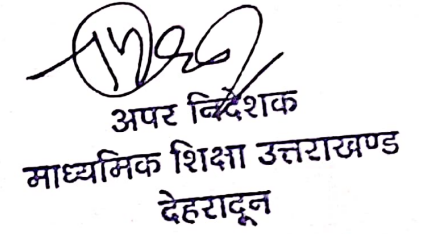 अपर निदेशक
माध्यमिक शिक्षा उत्तराखण्ड
देहरादून